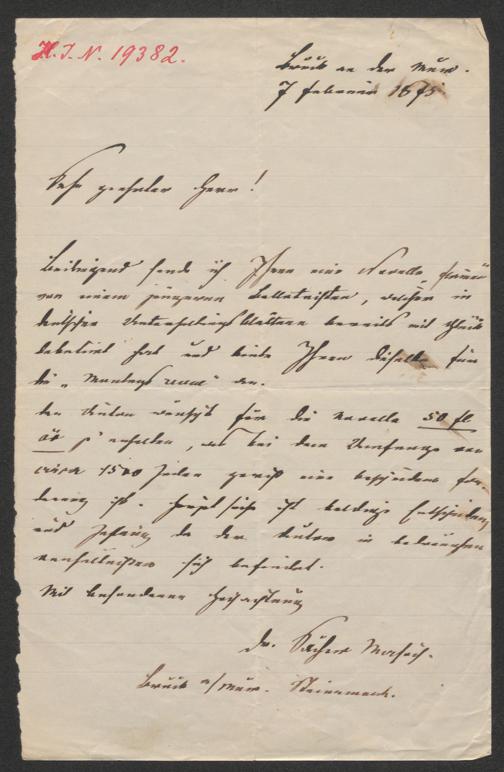 H. I. N. 19382.
Bruck an der Mur.
7 Februar 1875.
Sehr geehrter Herr!
Beiliegend sende ich Ihnen eine Novelle
von einem jüngeren Belletristen, welcher in
deutschen Unterhaltungsblättern bereits mit Glück
debutirt hat und biete Ihnen dieselbe für
die „Montags Revue" an.
Der Autor wünscht für die Novelle 50 fl
öW zu erhalten, was bei dem Umfange von
circa 1500 Zeilen gewiß eine bescheidene For-
derung ist. Hauptsache ist baldige Entscheidung
und Zahlung da der Autor in bedrängten
Verhältnissen sich befindet.
Mit besonderer Hochachtung
Dr. Sacher Masoch.
Bruck a/Mur. Steiermark.